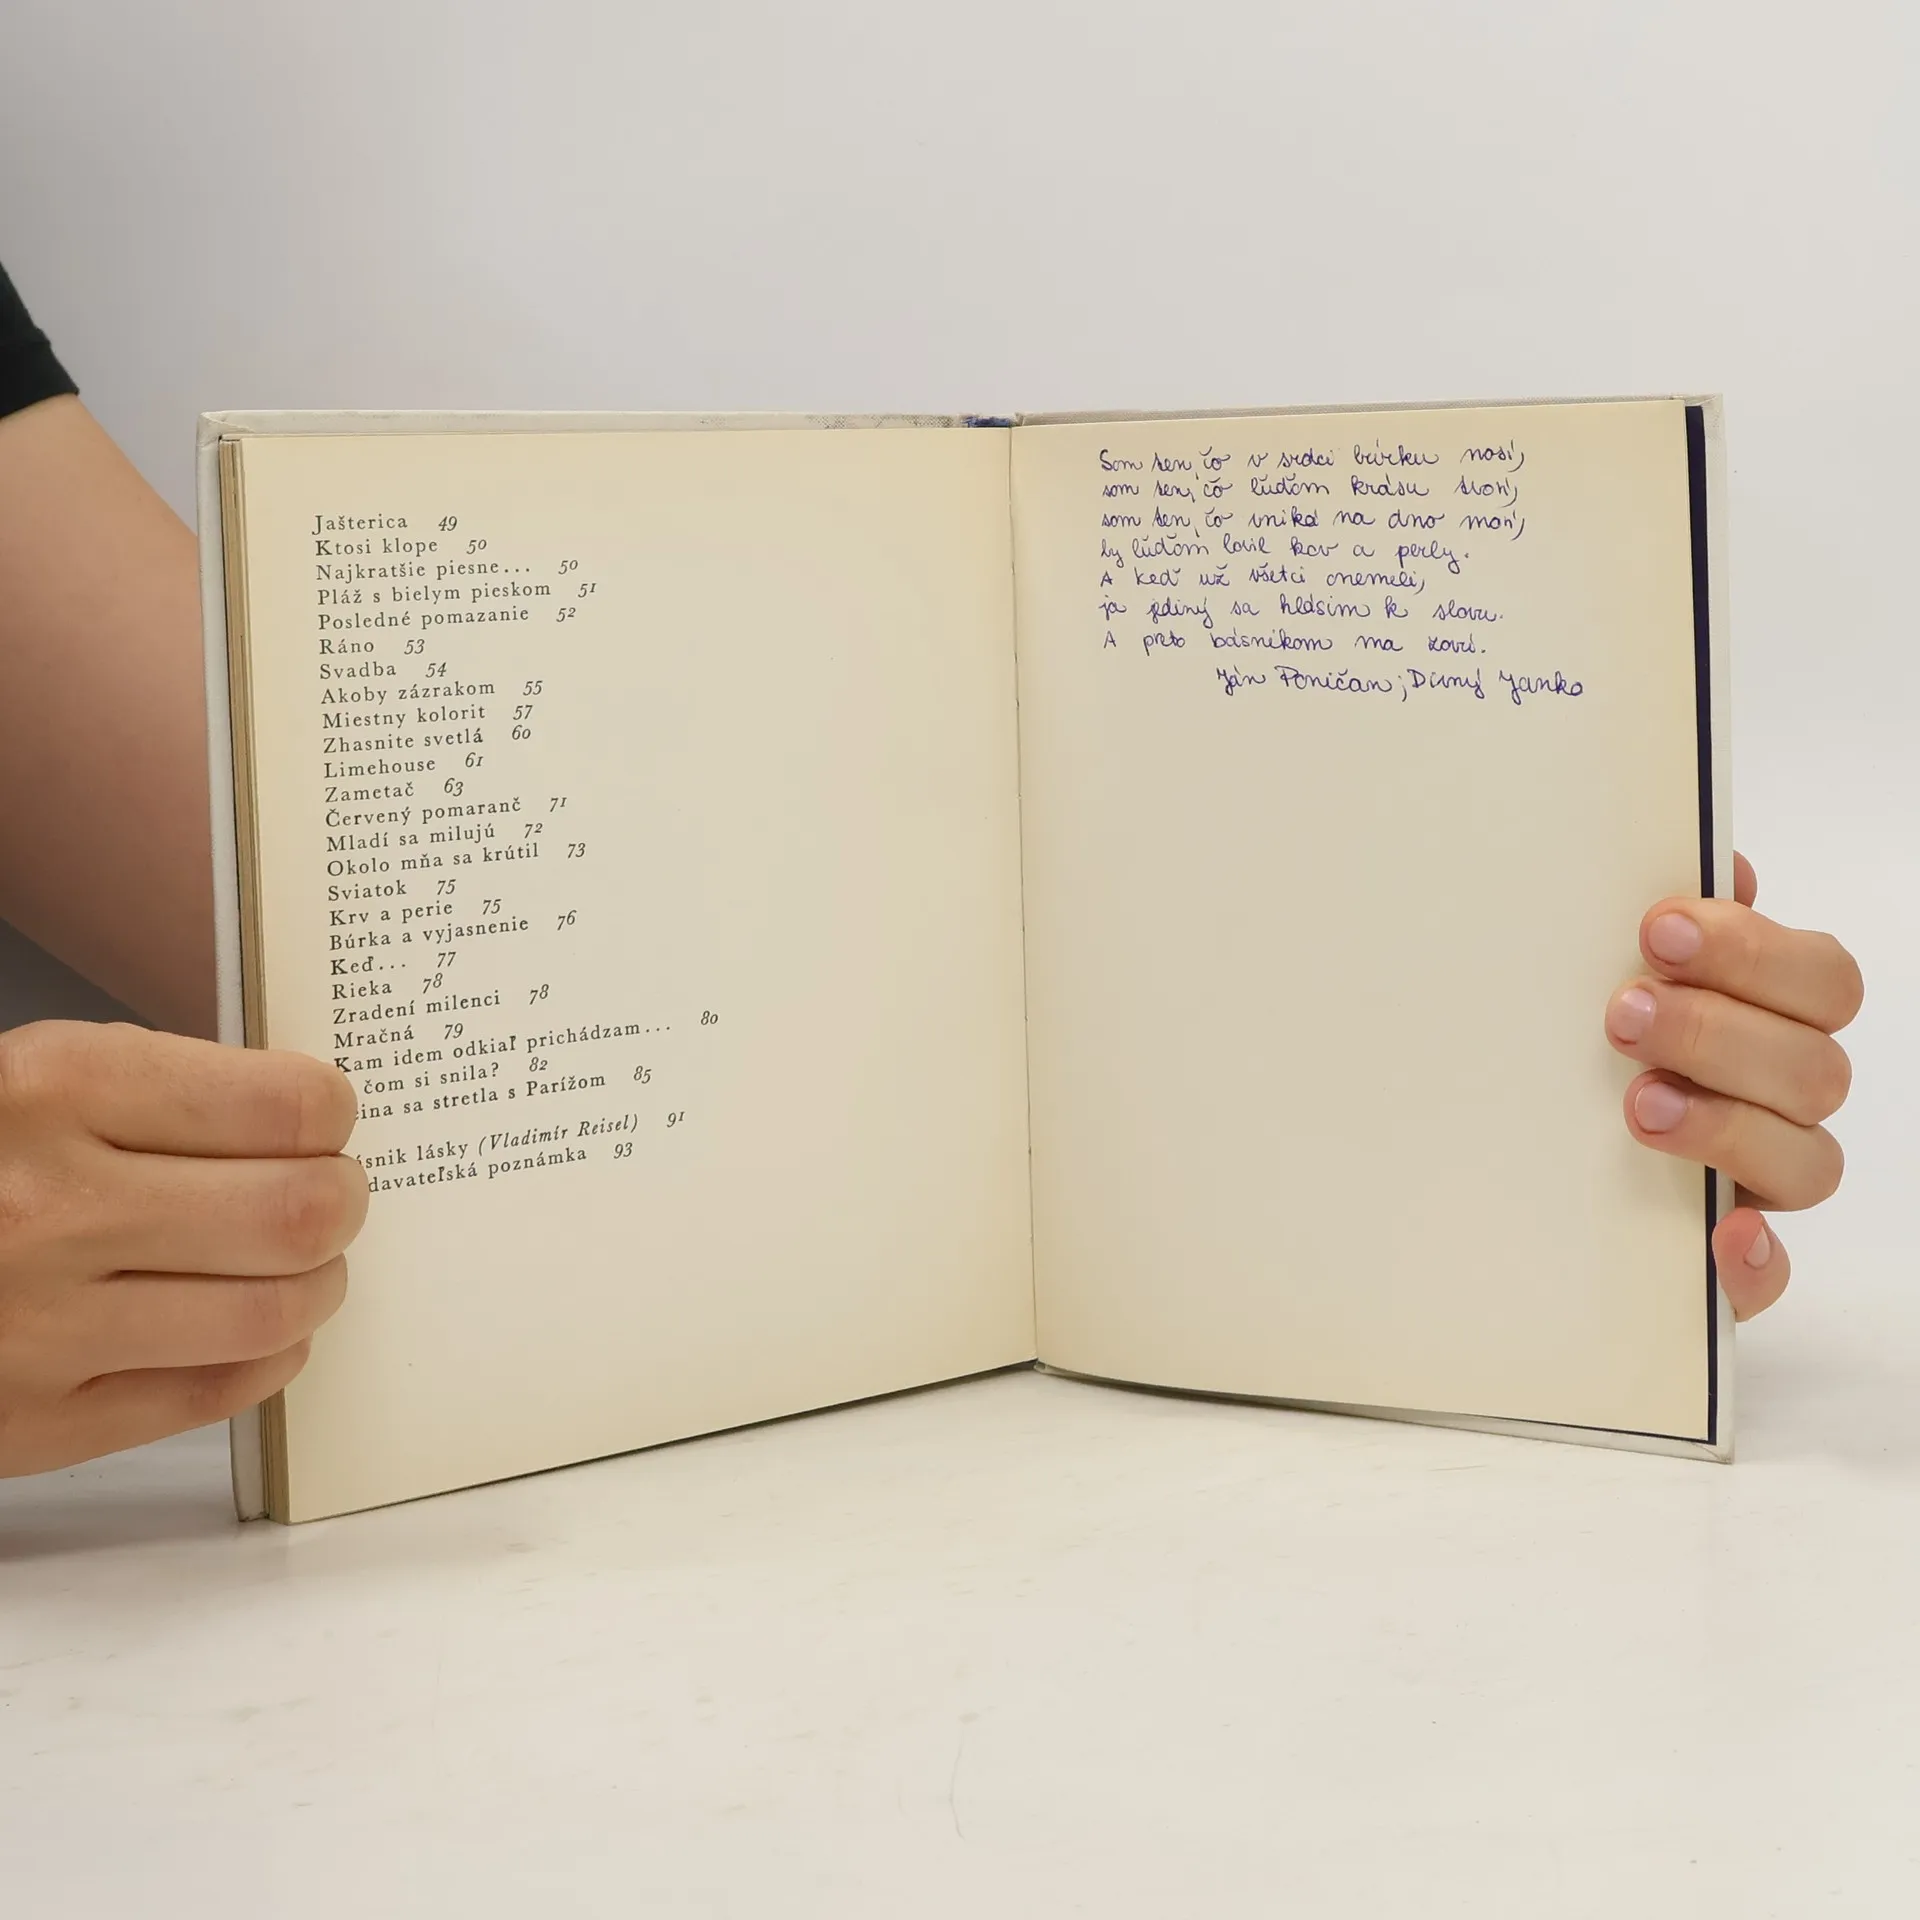 Jašterica 49
Ktosi klope 50
Najkratšie piesne... 50
Pláž s bielym pieskom 51
Posledné pomazanie 52
Ráno 53
Svadba 54
Akoby zázrakom 55
Miestny kolorit 57
Zhasnite svetlá 60
Limehouse 61
Zametač 63
Červený pomaranč 71
Mladí sa milujú 72
Okolo mňa sa krútil 73
Sviatok 75
Krv a perie 75
Búrka a vyjasnenie 76
Keď... 77
Rieka 78
Zradení milenci 78
Mračná 79
Kam idem odkiaľ prichádzam... 80
čom si snila? 82
eina sa stretla s Parížom 85
ásnik lásky (Vladimír Reisel) 91
davateľská poznámka 93
Som ten, čo v srdci búrku nosí,
som ten, čo ľuďom krásu tvorí,
som ten, čo vniká na dno morí,
by ľuďom lovil kov a perly.
A keď už všetci onemeli,
ja jediný sa hlásim k slovu.
A preto básnikom ma zovú.
Ján Poničan; Divný Janko